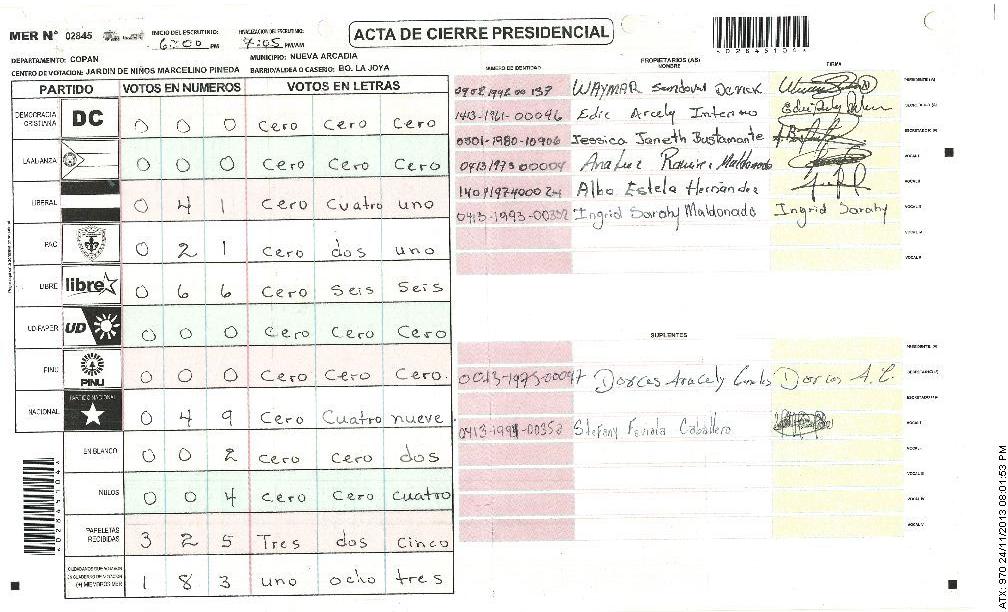 MER N° 02845
INICIO DEL ESCRUTINIO: 6:00 PM
FINALIZACION DEL ESCRUTINIO: 7:05 PM/AM
ACTA DE CIERRE PRESIDENCIAL
*02845104*
DEPARTAMENTO: COPAN
MUNICIPIO: NUEVA ARCADIA
CENTRO DE VOTACION: JARDIN DE NIÑOS MARCELINO PINEDA
BARRIO/ALDEA O CASERIO: BO. LA JOYA
PARTIDO VOTOS EN NUMEROS VOTOS EN LETRAS
DEMOCRACIA CRISTIANA DC 0 0 0 Cero Cero Cero
LA ALIANZA 0 0 0 Cero Cero Cero
LIBERAL 0 4 1 Cero Cuatro uno
PAC 0 2 1 Cero dos uno
LIBRE libre 0 6 6 Cero Seis Seis
UD FAPER UD 0 0 0 Cero Cero Cero
PINU PINU 0 0 0 Cero Cero Cero.
NACIONAL PARTIDO NACIONAL 0 4 9 Cero Cuatro nueve
EN BLANCO 0 0 2 Cero Cero dos
NULOS 0 0 4 Cero Cero Cuatro
PAPELETAS RECIBIDAS 3 2 5 Tres dos Cinco
CIUDADANOS QUE VOTARON EN CUADERNO DE VOTACION (+) MIEMBROS MER 1 8 3 uno ocho tres
*02845104*
PROPIETARIOS (AS)
NUMERO DE IDENTIDAD NOMBRE FIRMA
0902 1992 00 137 WAYMAR Sandoval Derick PRESIDENTE (A)
1413-1961-00046 Edie Arcely Interiano SECRETARIO (A)
0301-1980-10906 Jessica Janeth Bustamante ESCRUTADOR (A)
0413 1975 00004 Ana Luz Ramirez Maldonado VOCAL I
1401 1974 000 24 Alba Estela Hernández VOCAL II
0413-1993-00352 Ingrid Sarahy Maldonado Ingrid Sarahy VOCAL III
VOCAL IV
VOCAL V
SUPLENTES
PRESIDENTE (A)
0013-1975-00097 Dorcas Aracely Dorcas A. C. SECRETARIO (A)
ESCRUTADOR (A)
0413-1994-00352 Stefany Caballero VOCAL I
VOCAL II
VOCAL III
VOCAL IV
VOCAL V
ATX: 970 24/11/2013 08:01:53 PM